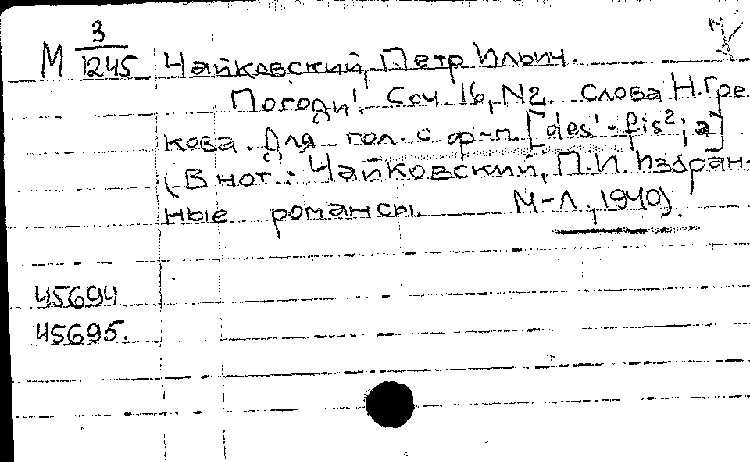 М 3/1245 Чайковский, Петр Ильич.
Погоди! Соч. 16, N2. Слова Н. Гре
кова. Для гол. с ф-п. [des¹-fis²; a]
(В нот.: Чайковский, П.И. Избран-
ные романсы. М-Л., 1940)
45694
45695.